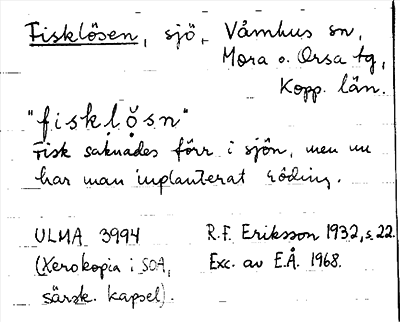 Fisklösen, sjö, Våmhus sn,
Mora o. Orsa tg,
Kopp. län.
"fisklösn"
Fisk saknades förr i sjön, men nu
har man inplanterat röding.
ULMA 3994 R.F. Eriksson 1932, s. 22.
(Xerokopia i SOA, Exc. av E.Å. 1968.
särsk. kapsel).